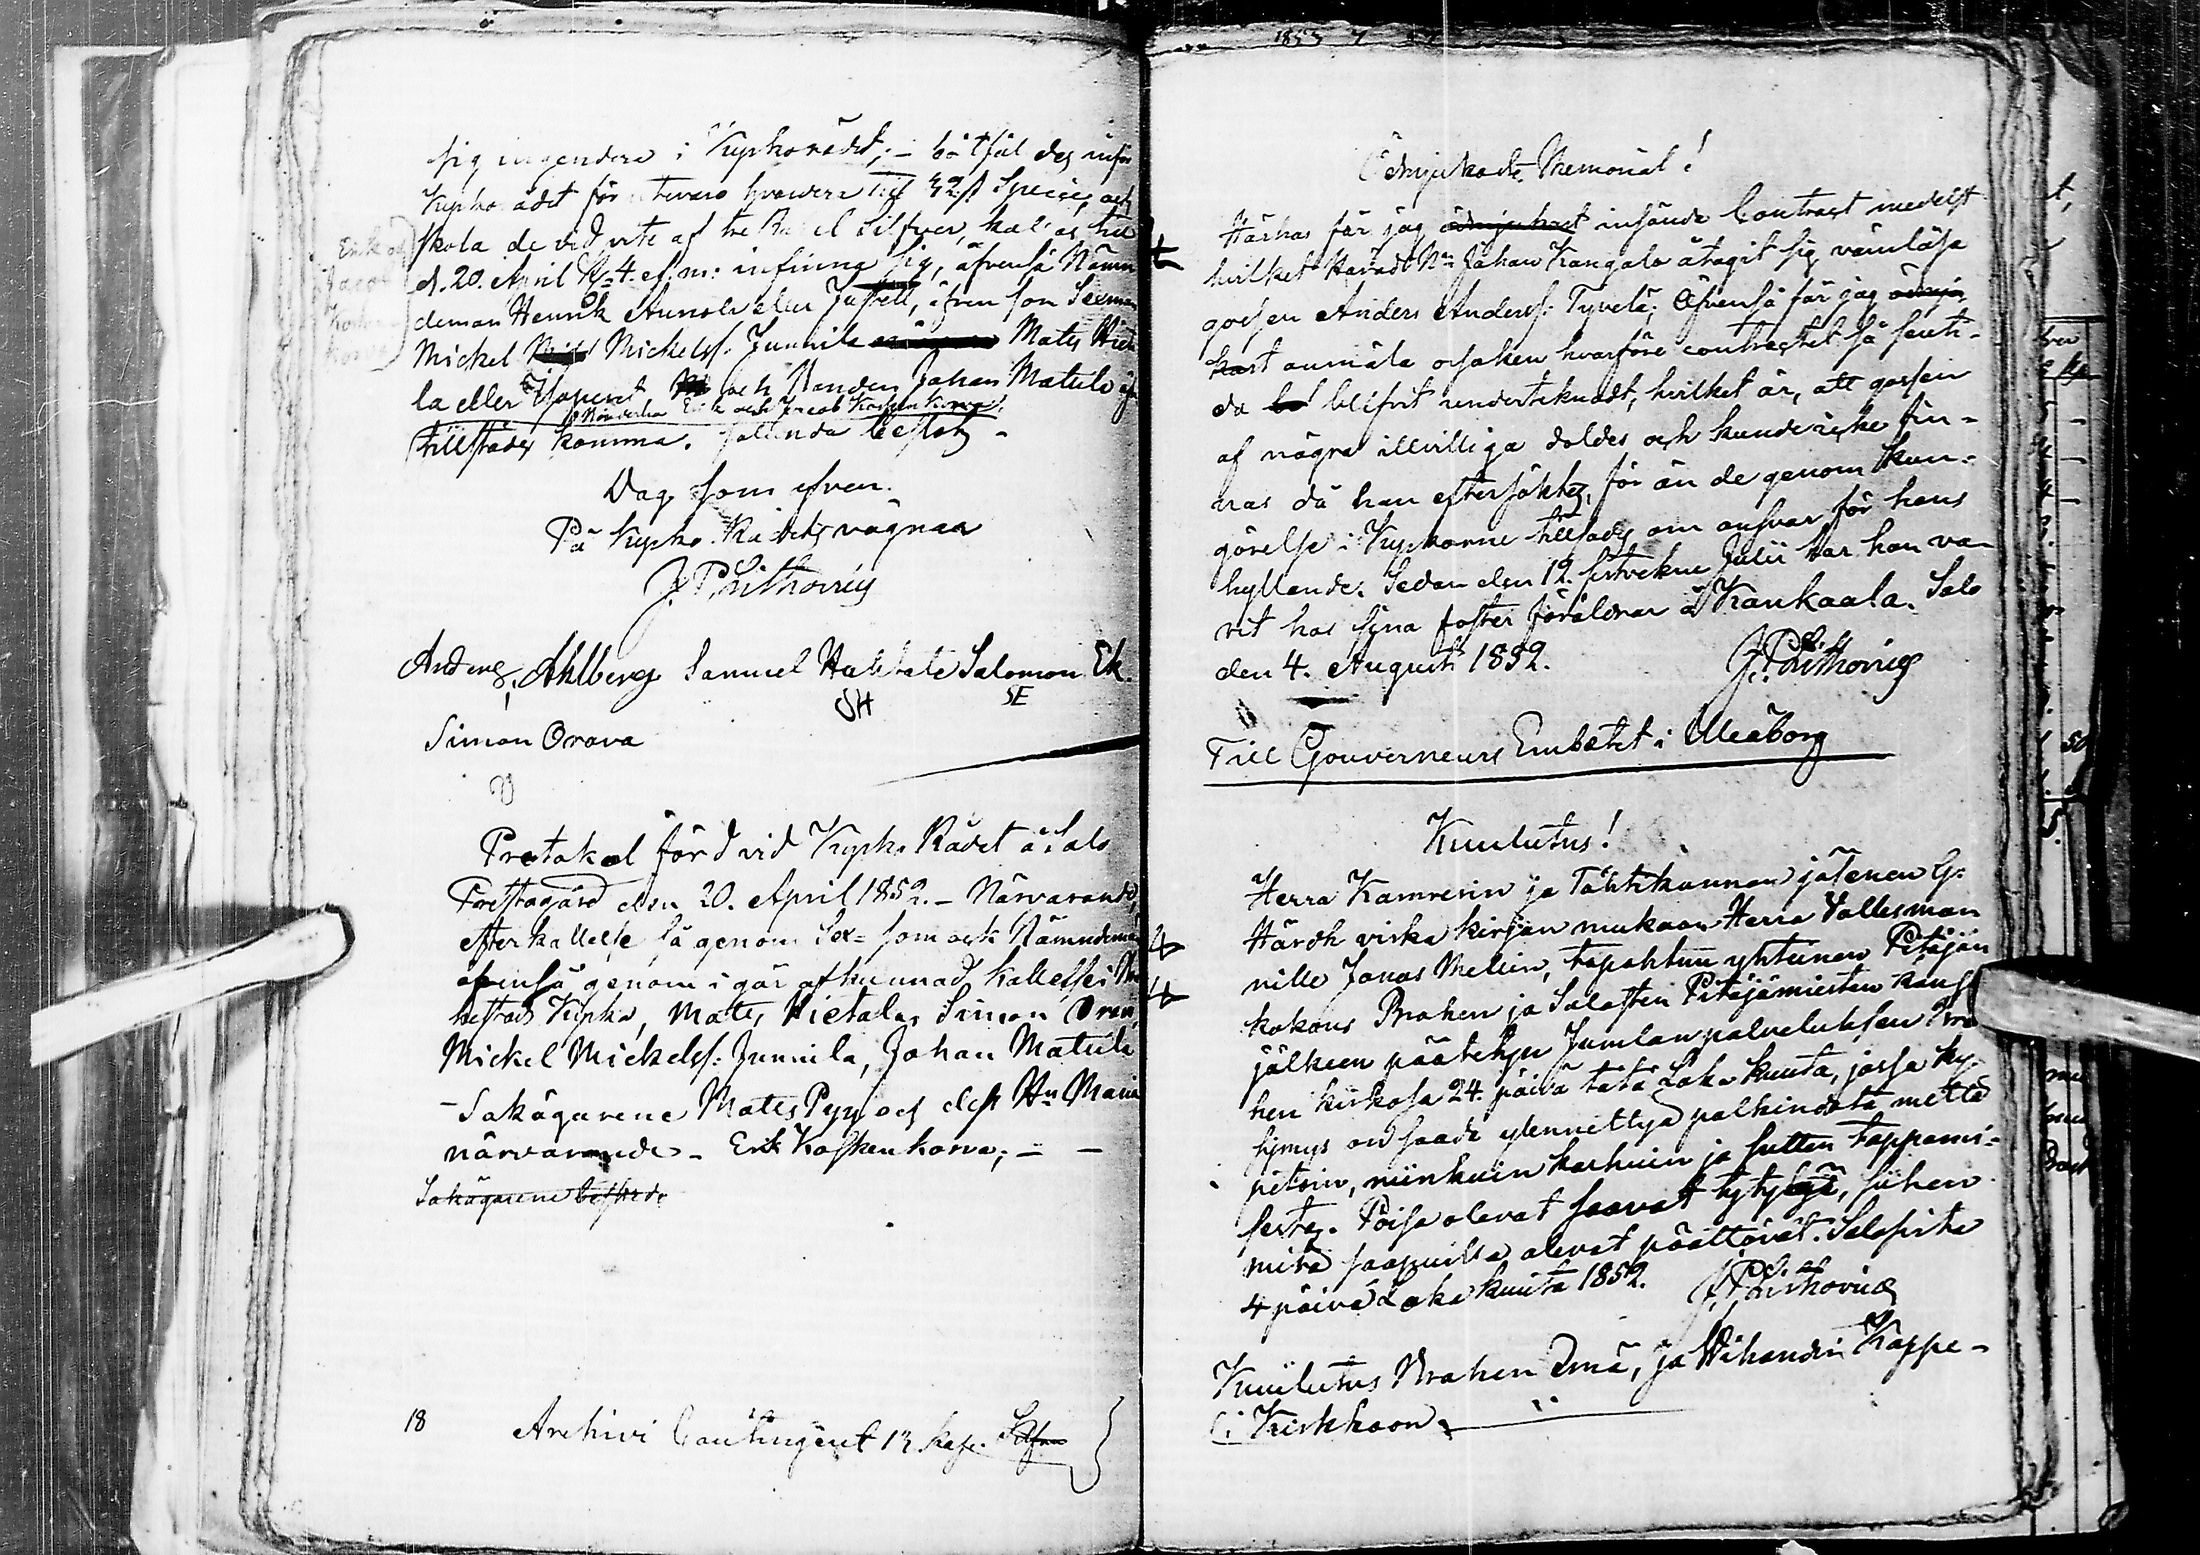 sig ingendera i Kyrkorådet; – båtfäl des inför
Kyrkorådet för
skola de vid vite af tre Rubel Silfver, kallas till
d. 20. April Kl. 4. ef. m: infinna sig, äfvenså Nämn
deman Henrik Aunola eller Jussell, äfven som Sexman
Mickel Mickelss. Junnila Mats Hieta
la eller och Johan Matula
Erik och Jacob Koskenkorva
tillstädes komma. Sålunda beslöts –
Erik och
Jacob
Kosken
korva
Dag som ofvan.
På Kyrko Rådets vägnar
J. P. Lithovius
Anders Ahlberg Samuel Hahtala Salomon Ek.
SH SE
Simon Orava
Protokol förd vid Kyrko Rådet i Salo
Prestagård den 20. April 1852. – Närvarande,
efter kallelse så genom Sex- som ock Nämndemän
äfvenså genom i går afkunnad kallelse i
Kyrka, Mats Hietala, Simon Orava,
Mickel Mickelss: Junnila, Johan Matula
– Sakägarene Mats Pyy och dess Hu Maria
närvarande – Erik Koskenkorva; – –
Sakägarene
18 Archivi Contingent 13 kop. Silfver
Ödmjukaste Memorial!
Härhos får jag ödmjukast insända Contract medelst
hvilket Johan Kangala åtagit sig vanlöse
gossen Anders Anderss: Tyvelä; Äfvenså får jag ödmju
kast anmäla orsaken hvarföre contractet så senti-
da blifvit undertecknadt, hvilket är, att gossen
af några illvilliga doldes och kunde icke fin-
nas då han eftersöktes, för än de genom kun-
görelse i Kyrkorne tillsades om ansvar för hans
hyllande. Sedan den 12. sistvekne Julii har han va
rit hos sina foster föräldrar å Kankaala. Salo
den 4. Augusti 1852. J. P. Lithovius
Till Gouverneurs Embetet i Uleåborg
Kuulutus!
Herra Kamrerin ja Tähtikunnan jäsenen G:
Hårdh virka kirjan mukaan Herra Vallesman
nille Jonas Mellin, tapahtuu yhteinen Pitäjän
kokous Brahen ja Saloisten Pitäjämiesten kanssa
jälkeen päätetyn Jumlan palveluksen Bra
hen kirkosa 24. päivä tätä Loka kuuta, jossa ky-
symys on saada ylennettyä palkindota mettä
petoin, niinkuin karhuin ja sutten tappami-
sesta. Poisa olevat saavat tytyä, siihen
mitä saapuilla olevat päättävät. Salosista
4 päivä Loka kuuta 1852. J. P. Lithovius
Kuulutus Brahen Emä, ja Vihandin Kappe-
li Kirkkoon.